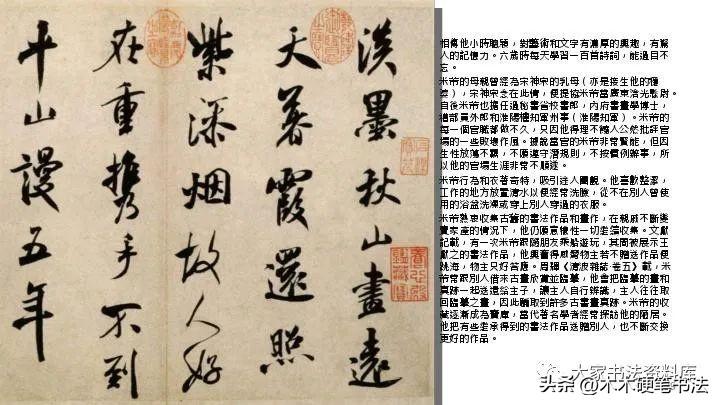 淡墨秋山畫遠
天暮霞還照
紫添烟故人好
在重携手不到
平山謾五年
相傳他小時聰穎，對藝術和文字有濃厚的興趣，有驚
人的記憶力。六歲時每天學習一百首詩詞，能過目不
忘。
米芾的母親曾經為宋神宗的乳母（亦是接生他的穩
婆），宋神宗念在此情，便提攜米芾當廣東浛光縣尉。
自後米芾也擔任過秘書省校書郎，內府書畫學博士，
禮部員外郎和淮陽知軍州事（淮陽知軍）。米芾的
每一個官職都做不久，只因他得理不饒人公然批評官
場的一些敗壞作風。據說當官的米芾非常賢能，但因
生性放蕩不羈，不願遵守潛規則，不按慣例辦事，所
以他的官場生涯非常不順遂。
米芾行為和衣著奇特，吸引途人圍觀。他喜歡整潔，
工作的地方放置清水以便經常洗臉，從不在別人曾使
用的浴盆洗澡或穿上別人穿過的衣服。
米芾熱衷收集古舊的書法作品和畫作，在親戚不斷變
賣家產的情況下，他仍願意犧牲一切繼續收集。文獻
記載，有一次米芾跟隨朋友乘船遊玩，其間被展示王
獻之的書法作品，他興奮得威脅物主若不贈送作品便
跳海，物主只好答應。周輝《清波雜誌·卷五》載，米芾
常跟別人借來古畫欣賞並臨摹，他會把臨摹的畫和
真跡一起送還給主子，讓主人自行辨識，主人往往取
回臨摹之畫，因此騙取到許多古書畫真跡。米芾的收
藏逐漸成為寶庫，當代著名學者經常探訪他的陋居。
他把有些繼承得到的書法作品送贈別人，也不斷交換
更好的作品。
大家书法资料库
头条 @木木硬笔书法